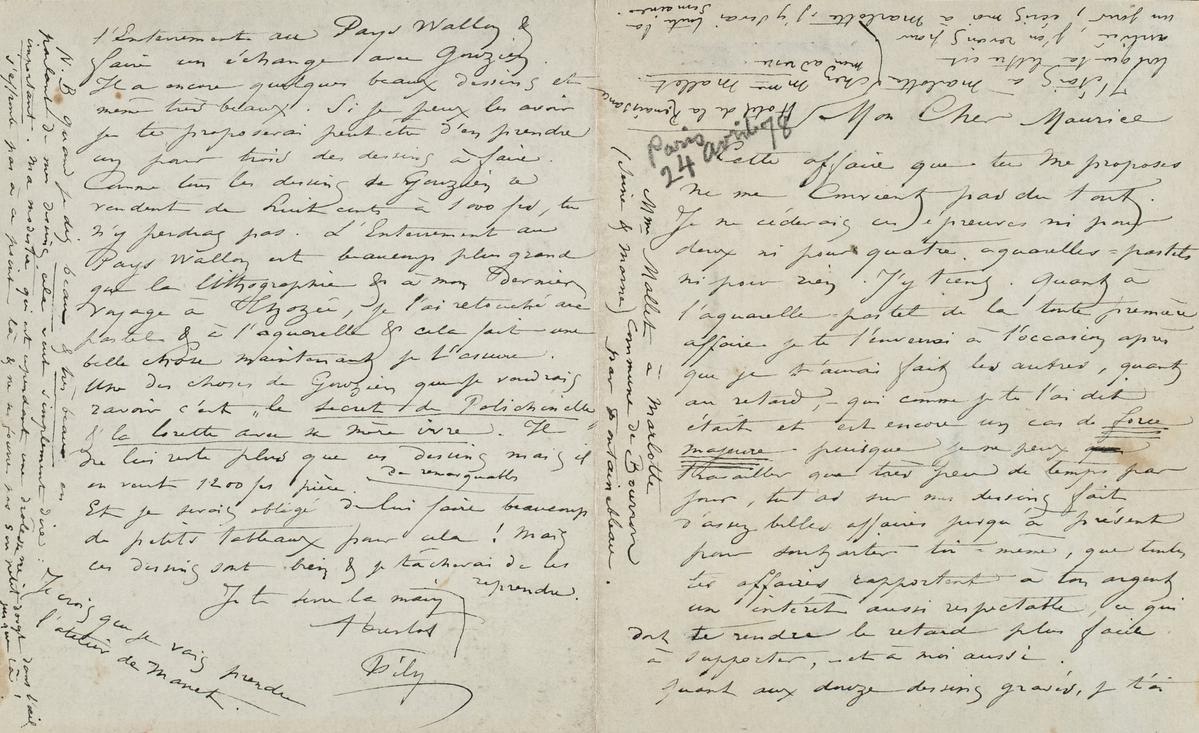 Paris
24 avril 78
Mon Cher Maurice
Cette affaire que tu me proposes
ne me Convient pas du tout.
Je ne céderais ces épreuves ni pour
deux ni pour quatre aquarelles-pastels
ni pour rien. J'y tiens. Quant à
l'aquarelle-pastel de la toute première
affaire je te l'enverrai à l'occasion après
que je t'aurai fait les autres, quant
au retard, - qui comme je te l'ai dit
était et est encore un cas de force
majeure - puisque je ne peux
travailler que très peu de temps par
jour, tu as sur mes dessins fait
d'assez belles affaires jusqu'à présent
pour souhaiter toi-même, que toutes
tes affaires rapportent à ton argent
un intérêt aussi respectable, ce qui
doit te rendre le retard plus facile
à supporter, - et à moi aussi.
Quant aux douze dessins gravés, je t'ai
J'irai à Marlotte chez
Mme Mallet.
Hôtel de la Renaissance
Mme Mallet à Marlotte
(Seine & Marne) Commune de Bourron
par Fontainebleau.
l'Enterrement au Pays Wallon &
faire un échange avec Gouzien
Il a encore quelques beaux dessins et
même très beaux. Si je peux les avoir
je te proposerai peut-être d'en prendre
un pour trois des dessins à faire.
Comme tous les dessins de Gouzien se
vendent de huit cents à 1000 frs, tu
n'y perdras pas. L'Enterrement au
Pays Wallon est beaucoup plus grand
que la lithographie & à mon Dernier
voyage à Thozée, je l'ai retouché au
pastel & à l'aquarelle & cela fait une
belle chose maintenant je t'assure.
Une des choses de Gouzien que je voudrais
ravoir c'est "le secret de Polichinelle"
& la lorette avec sa mère ivre. Il
ne lui reste plus que ces dessins mais il
de remarquables
en veut 1200 frs pièce.
Et je serais obligé de lui faire beaucoup
de petits tableaux pour cela ! Mais
ces dessins sont bien & je tâcherai de les
reprendre.
Je te serre la main
Fély
Je crois que je vais prendre
l'atelier de Manet.
N.B quand je dis beau & très beau en
parlant de mes dessins cela veut simplement dire:
important. Ma modestie qui est cependant une drôlesse